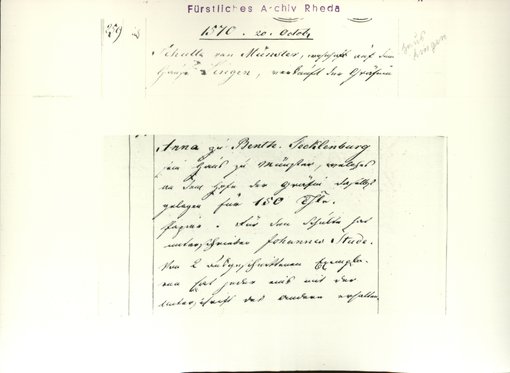 Fürstliches Archiv Rheda
259
1570. 20. Octob.
Schulte van Münster, wohnhaft auf dem
Hause Lingen, verkauft der Gräfin
Haus
Lingen
Anna zu Benth. Tecklenburg
ein Haus zu Münster, welches
an dem Hofe der Gräfin daselbst
gelegen für 150 Thlr.
Papier. Für den Schulte hat
unterschrieben Johannes Stude.
Von 2 ausgeschnittenen Exempla-
ren hat jeder eins mit der
Unterschrift des andern erhalten.